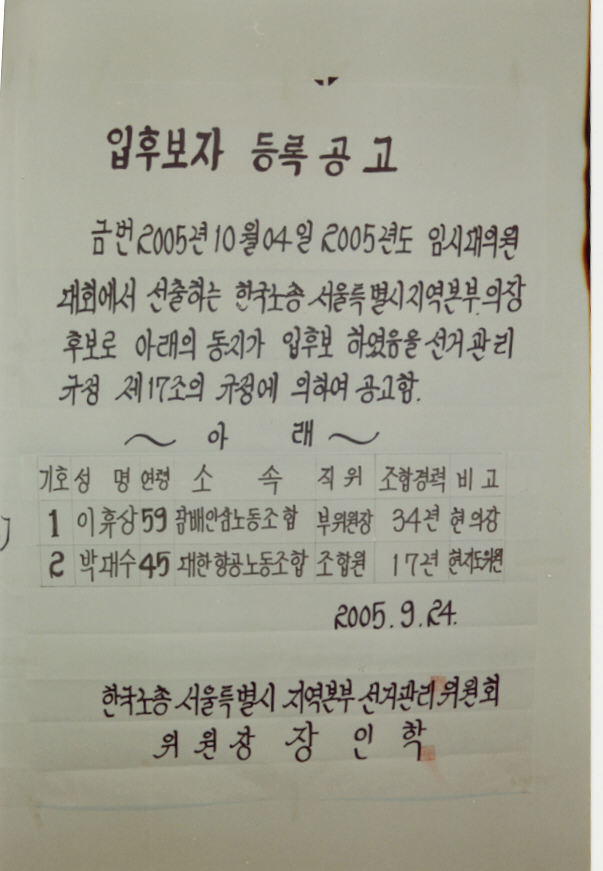 입후보자 등록공고
금번 2005년 10월 04일 2005년도 임시대의원
대회에서 선출하는 한국노총 서울특별시지역본부 의장
후보로 아래의 동지가 입후보 하였음을 선거관리
규정 제17조의 규정에 의하여 공고함.
~ 아 래 ~
기호 성 명 연령 소 속 직위 조합경력 비고
1 이휴상 59 담배인삼노동조합 부위원장 34년 현의장
2 박대수 45 대한항공노동조합 조합원 17년 현지도위원
2005.9.24.
한국노총 서울특별시 지역본부 선거관리위원회
위원장 장인학